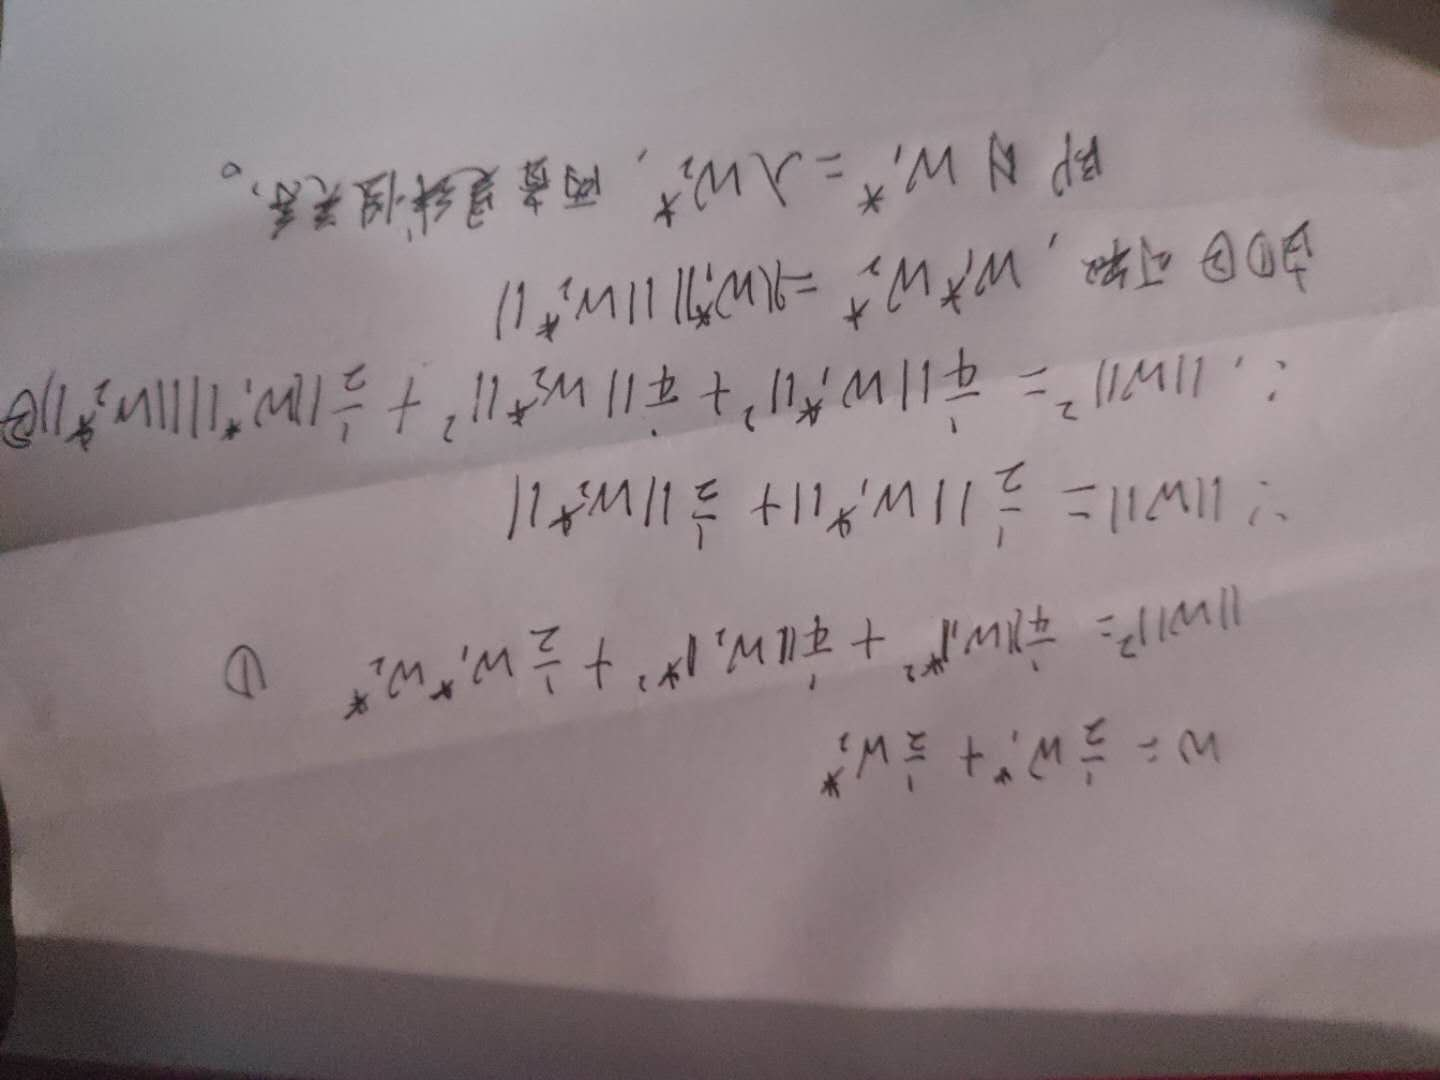 w = 1/2 w₁* + 1/2 w₂*
||w||² = 1/4 ||w₁||*² + 1/4 ||w₂||*² + 1/2 w₁* w₂* ①
∵ ||w|| = 1/2 ||w₁*|| + 1/2 ||w₂*||
∴ ||w||² = 1/4 ||w₁*||² + 1/4 ||w₂*||² + 1/2 ||w₁*|| ||w₂*|| ②
由①②可知, w₁* w₂* = ||w₁*|| ||w₂*||
即 w₁* = λw₂*, 两者是线性关系。